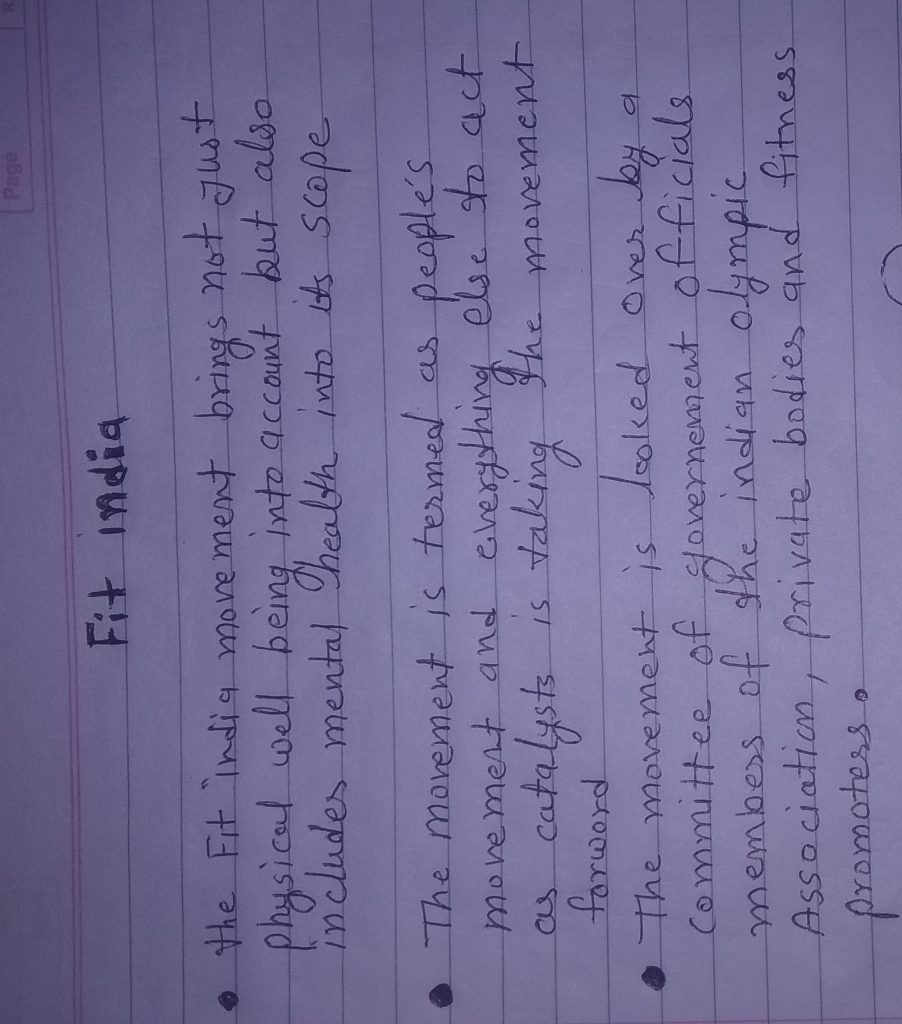 Page
Fit india
• the Fit india movement brings not just
physical well being into account but also
includes mental health into its scope
• The movement is termed as people's
movement and everything else to act
as catalysts is taking the movement
forword
• The movement is looked over by a
committee of governement officials
members of the indian olympic
Association, private bodies and fitness
promoters.